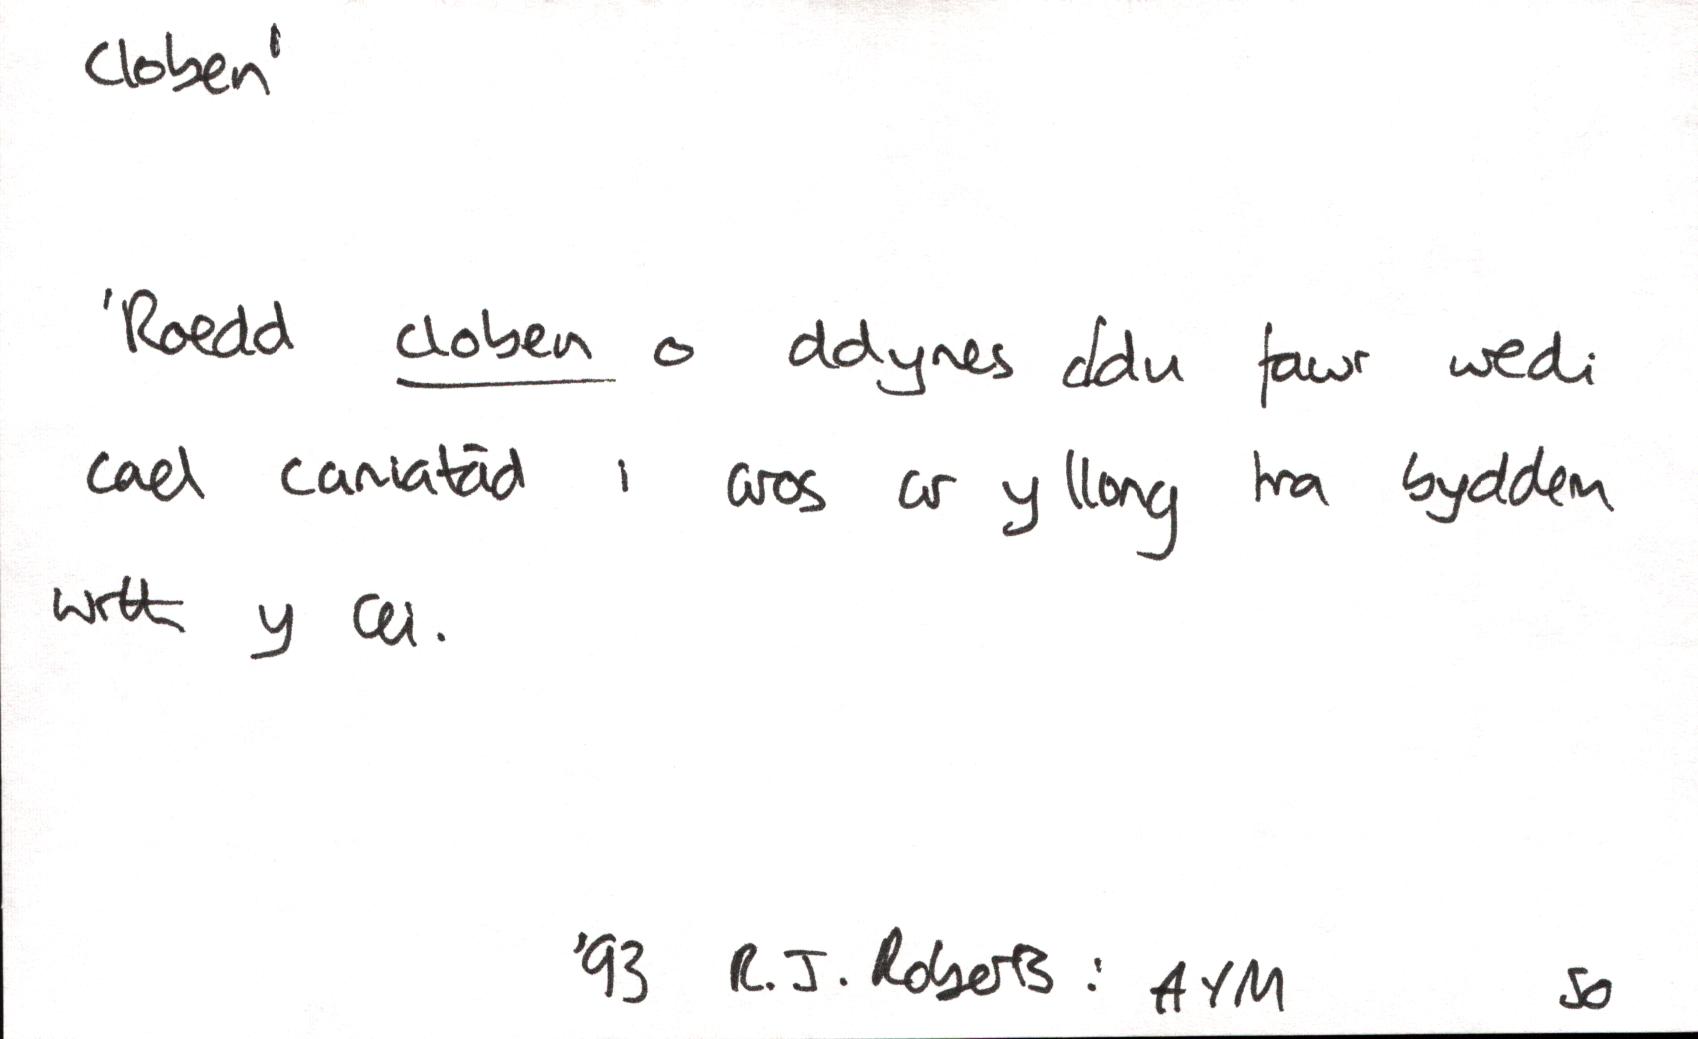 cloben'
'Roedd cloben o ddynes ddu fawr wedi
cael caniatâd i aros ar y llong tra byddem
wrth y cei.
'93 R.J. Roberts: AYM 50